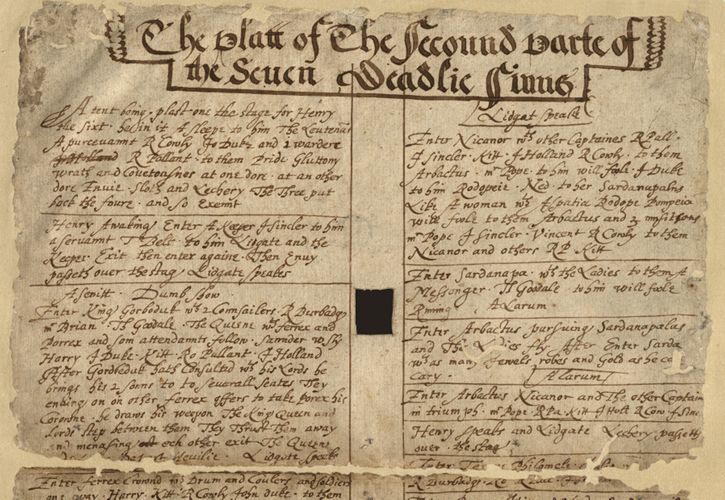 The platt of The Secound parte of
the Seuen Deadlie Sinns
A tent being plast one the stage for Henry
the sixt. he in it A sleepe to him The Leutenãt
A purceuaunt R Cowly Jo Duke and 1 wardere
R Pallant. to them Pride Gluttony
Wrath and Couetousnes at one dore. at an other
dore Enuie Sloth and Lechery The Three put
back the foure. and so Exeunt
Henry Awaking Enter A Keeper J Sincler to him
a seruaunt T Belt. to him Lidgate and the
Keeper. Exit then enter againe. Then Enuy
passeth over the stag. Lidgate speakes
A senitt. Dumb show
Enter King Gorboduk wth 2 Counsailers. R Burbadg
mr Brian. Th Goodale. The Queene wth Ferrex and
Porrex and som attendaunts follow.
Harry J Duke. Kitt. Ro Pallant. J Holland
After Gordbeduk hath Consulted wth his Lords he
brings his 2 sons to to seuerall seates They
enuing on on other ferrex offers to take porex his
Corowne. he draws his weopon The King Queen and
Lords step between them They Thrust Them away
and menasing ech other exit The Queene
Lidgate speaks
Enter Ferrex Crownd wth Drum and Coulers and soldiers
one way. Harry. Kitt. R Cowly John duke. to them
Lidgat speake
Enter Nicanor wth other Captaines R Pall.
J Sincler. Kitt. J Holland R Cowly. to them
Arbactus. mr Pope. to him will foole. J Duke
to him Rodopeie. Ned. to her Sardanapalus
Like A woman wth Aspatia Rodope Pompeia
will foole to them Arbactus and 3 musitions
mr Pope J Sincler. Vincent R Cowly to them
Nicanor and others R P. Kitt
Enter Sardanapa. wth the Ladies to them A
Messenger. Th Goodale to him will foole
Runing. A Larum
Enter Arbactus pursuing Sardanapalas
and The Ladies fly. After Enter Sarda
wth as many Jewels robes and Gold as he ca
cary. A larum
Enter Arbactus Nicanor and The other Captain
in triumph. mr Pope. R Pa. Kitt J Holl R Cow. J Sinc
Henry speaks and Lidgate Lechery passeth
over the stag